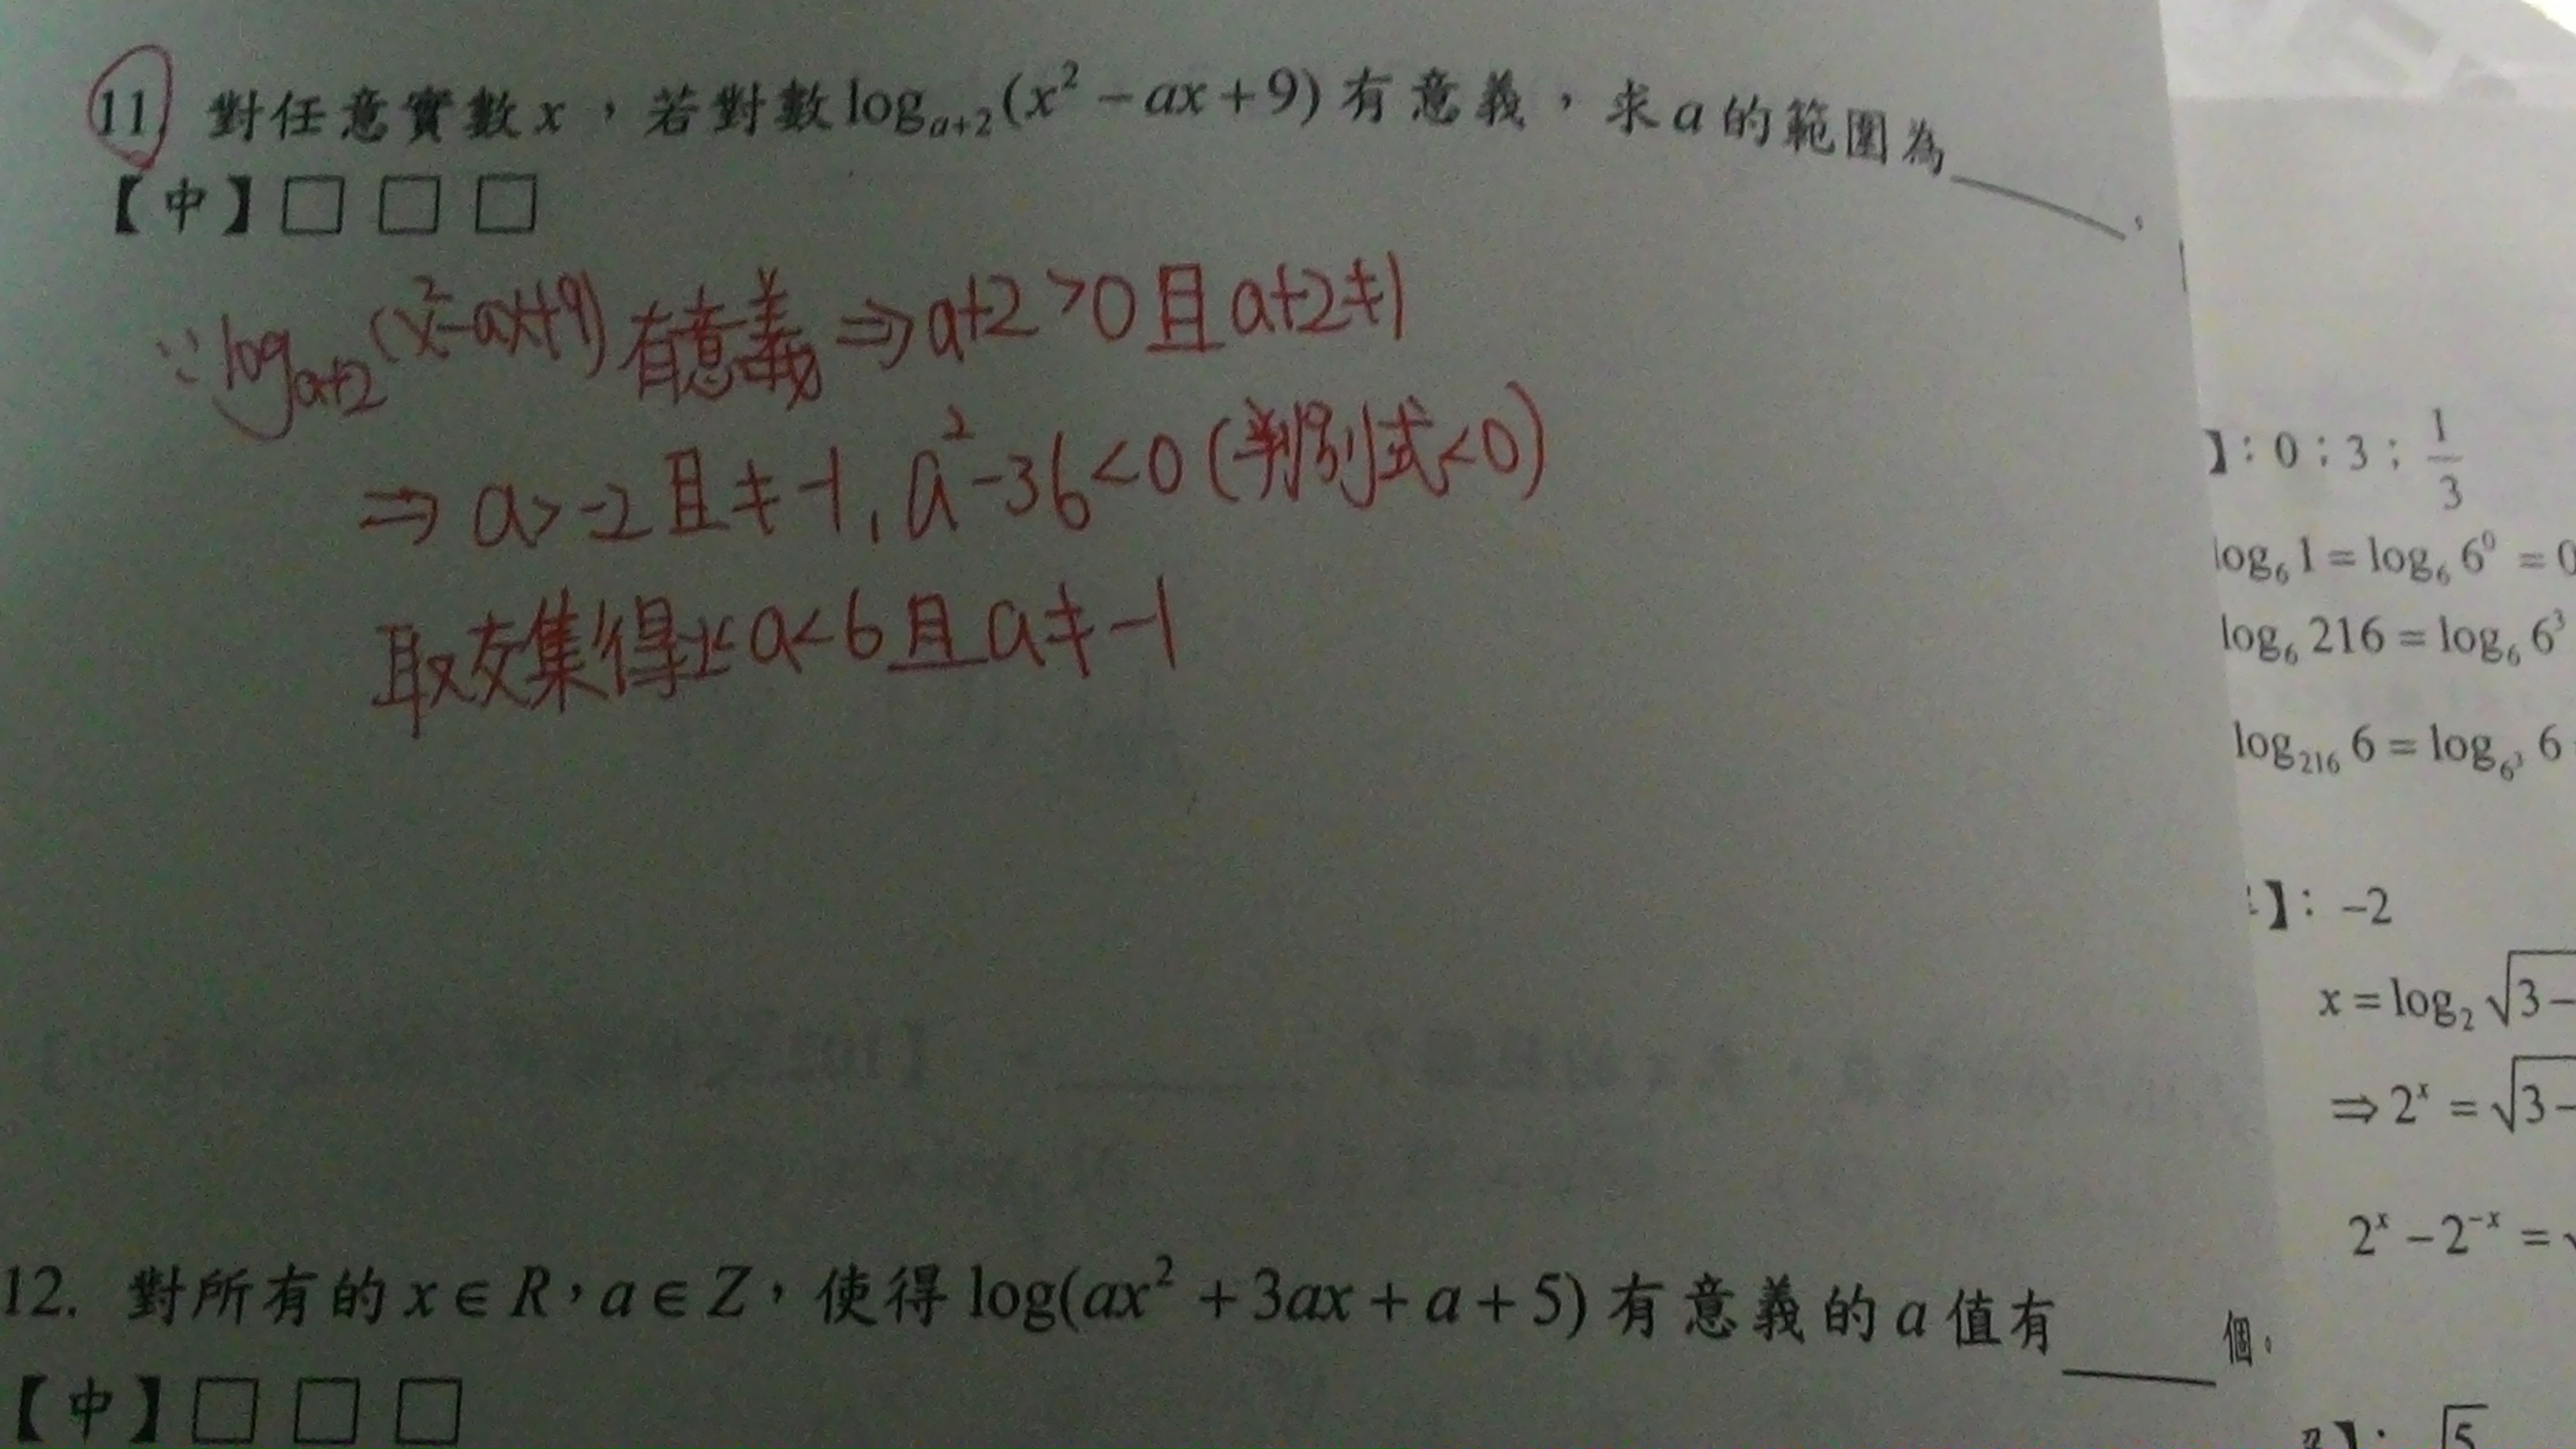 11. 對任意實數x,若對數log_{a+2}(x² − ax + 9)有意義,求a的範圍為______。
【中】□ □ □
∵log_{a+2}(x²-ax+9)有意義⇒a+2>0且a+2≠1
⇒ a>-2且≠-1, a²-36<0(判別式<0)
取交集得-2<a<6且a≠-1
12. 對所有的x∈R,a∈Z,使得log(ax² + 3ax + a + 5)有意義的a值有____個。
【中】□ □ □
】:0;3;1/3
log₆ 1 = log₆ 6⁰ = 0
log₆ 216 = log₆ 6³
log₂₁₆ 6 = log_{6³} 6
】:−2
x = log₂ √3−
⇒ 2ˣ = √3−
2ˣ − 2⁻ˣ =
】:√5